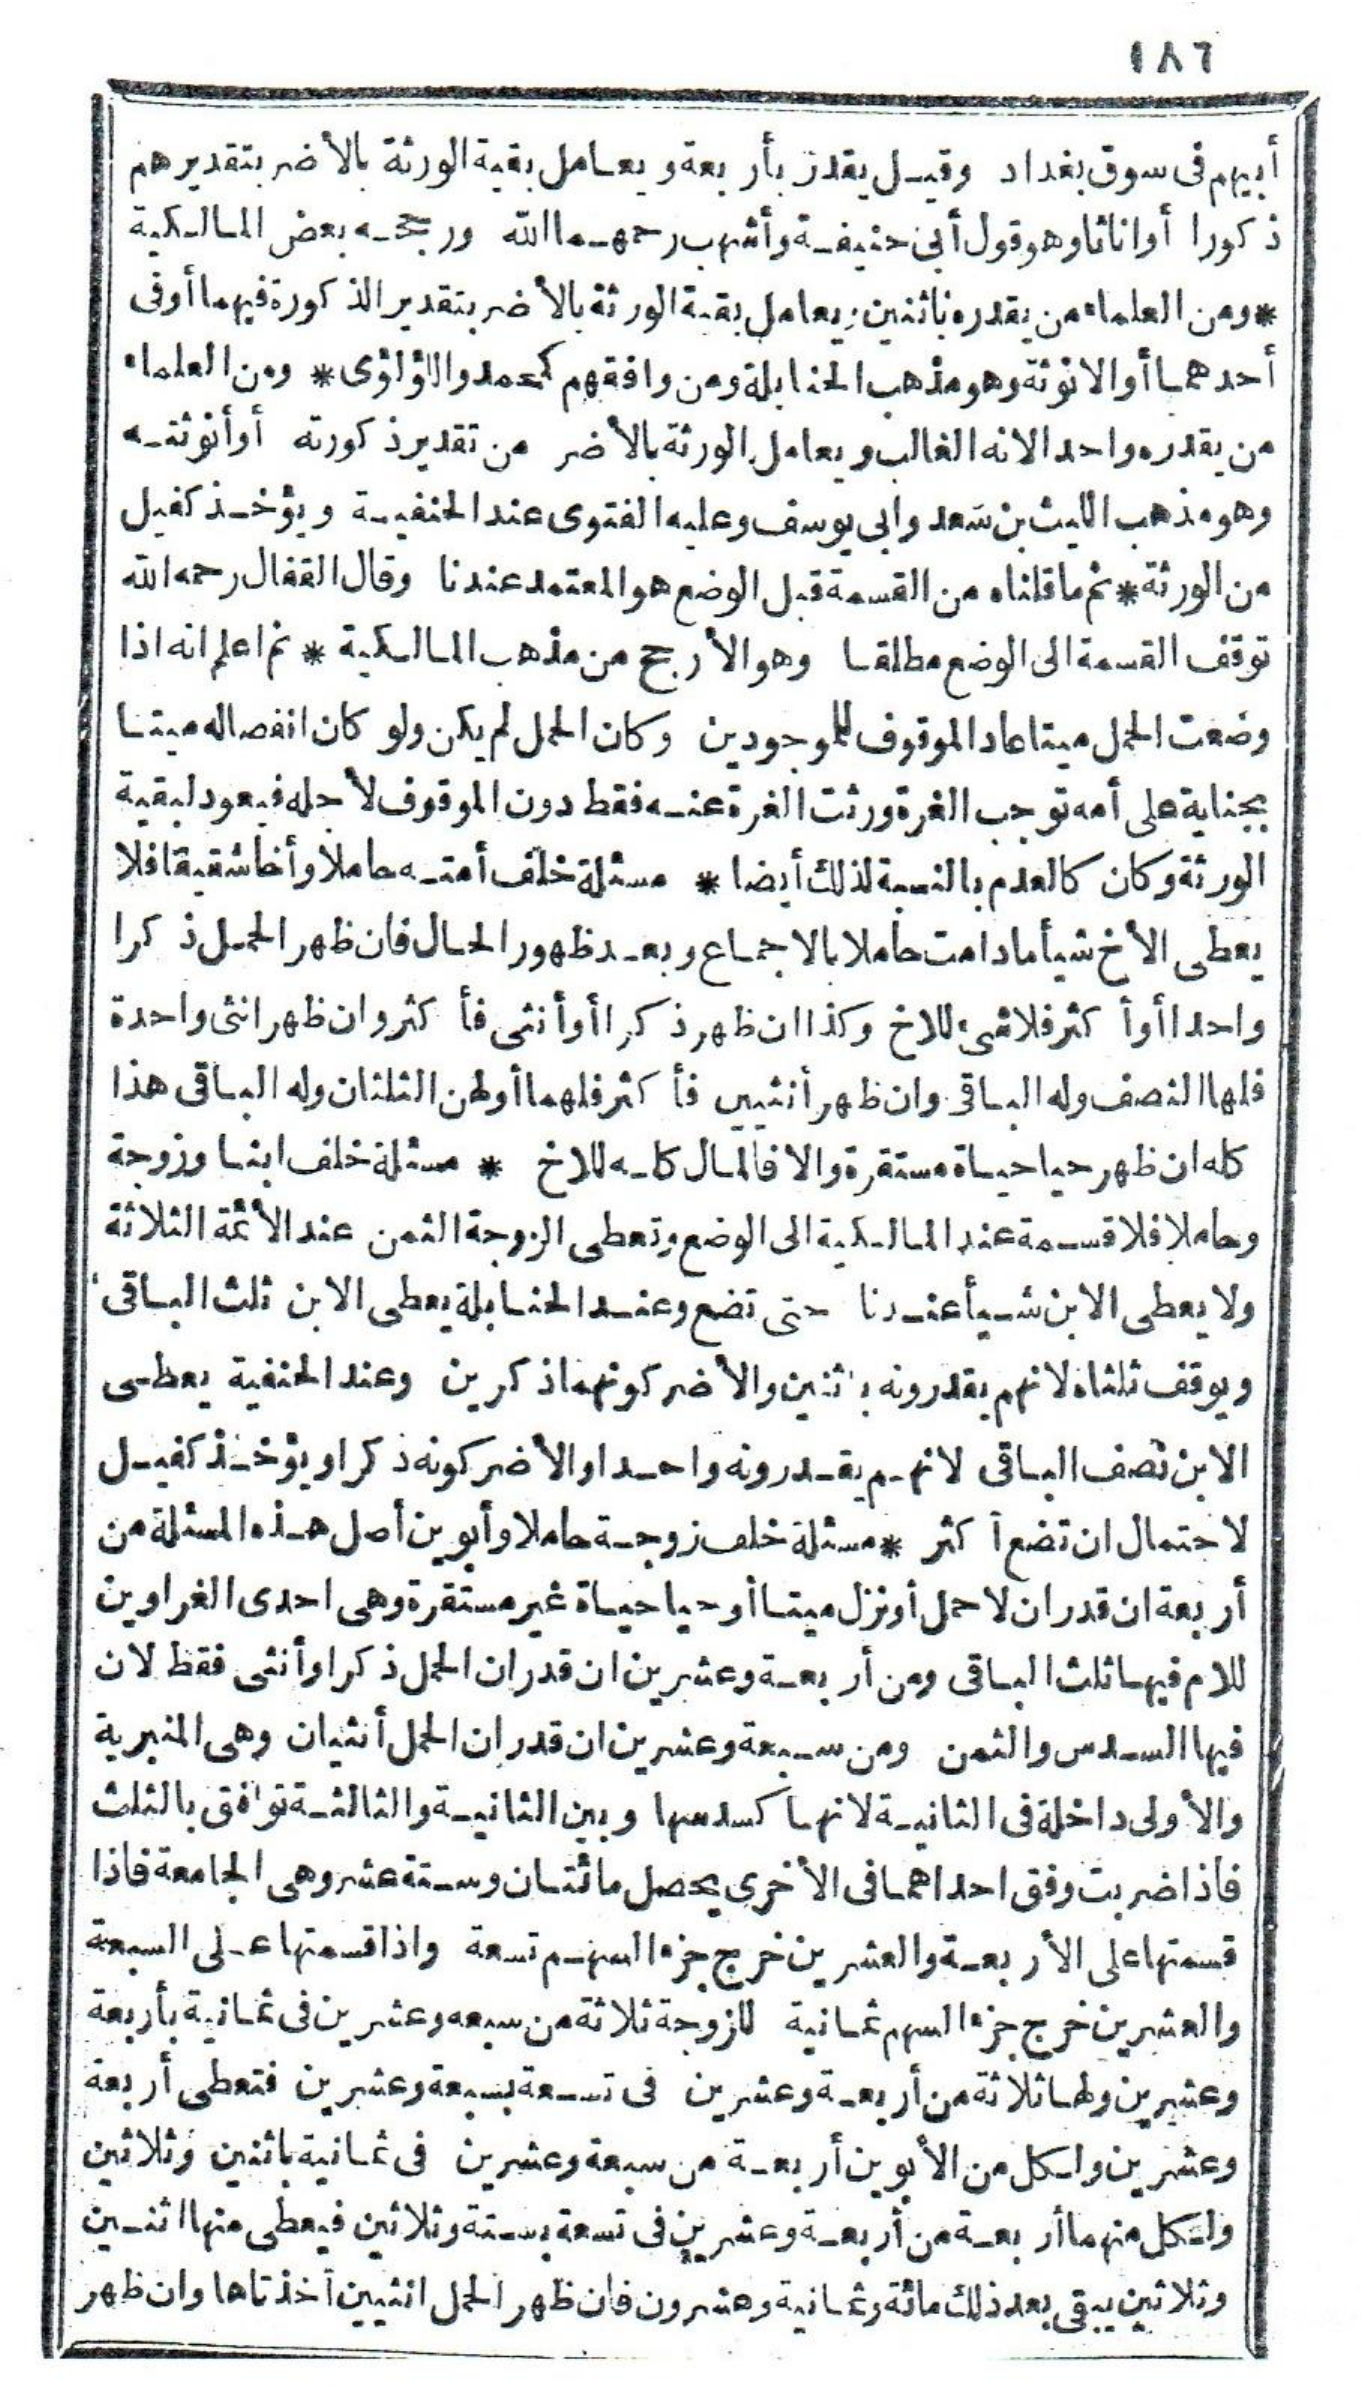 ١٨٦
أبيهم فى سوق بغداد وقيل يقدر بأربعة ويعامل بقية الورثة بالأضر بتقديرهم
ذكورا أواناثا وهو قول أبى حنيفة وأشهب رحمهما الله ورجحه بعض المالكية
*ومن العلماء من يقدره باثنين ويعامل بقية الورثة بالأضر بتقدير الذكورة فيهما أو فى
أحدهما أو الانوثة وهو مذهب الحنابلة ومن وافقهم كمحمد واللؤلؤى * ومن العلماء
من يقدره واحدا لانه الغالب ويعامل الورثة بالأضر من تقدير ذكورته أو أنوثته
وهو مذهب الليث بن سعد وابى يوسف وعليه الفتوى عند الحنفية ويؤخذ كفيل
من الورثة * ثم ما قلناه من القسمة قبل الوضع هو المعتمد عندنا وقال القفال رحمه الله
توقف القسمة الى الوضع مطلقا وهو الأرجح من مذهب المالكية * ثم اعلم انه اذا
وضعت الحمل ميتا عاد الموقوف للموجودين وكان الحمل لم يكن ولو كان انفصاله ميتا
بجناية على أمه توجب الغرة ورثت الغرة عنه فقط دون الموقوف لأجله فيعود لبقية
الورثة وكان كالعدم بالنسبة لذلك أيضا * مسئلة خلف أمته حاملا وأخا شقيقا فلا
يعطى الأخ شيأ مادامت حاملا بالاجماع وبعد ظهور الحال فان ظهر الحمل ذكرا
واحدا أو أكثر فلا شىء للاخ وكذا ان ظهر ذكرا أو أنثى فأكثر وان ظهر انثى واحدة
فلها النصف وله الباقى وان ظهر أنثيين فأكثر فلهما أولهن الثلثان وله الباقى هذا
كله ان ظهر حيا حياة مستقرة والا فالمال كله للاخ * مسئلة خلف ابنا وزوجة
وحاملا فلا قسمة عند المالكية الى الوضع وتعطى الزوجة الثمن عند الأئمة الثلاثة
ولا يعطى الابن شيأ عندنا حتى تضع وعند الحنابلة يعطى الابن ثلث الباقى
ويوقف ثلثاه لانهم يقدرونه باثنين والأضر كونهما ذكرين وعند الحنفية يعطى
الابن نصف الباقى لانهم يقدرونه واحدا والأضر كونه ذكرا ويؤخذ كفيل
لاحتمال ان تضع أكثر * مسئلة خلف زوجة حاملا وأبوين أصل هذه المسئلة من
أربعة ان قدر ان لا حمل أو نزل ميتا أو حيا حياة غير مستقرة وهى احدى الغراوين
للام فيها ثلث الباقى ومن أربعة وعشرين ان قدر ان الحمل ذكر اوأنثى فقط لان
فيها السدس والثمن ومن سبعة وعشرين ان قدر ان الحمل أنثيان وهى المنبرية
والأولى داخلة فى الثانية لانها كسدسها وبين الثانية والثالثة توافق بالثلث
فاذا ضربت وفق احداهما فى الأخرى يحصل مائتان وستة عشر وهى الجامعة فاذا
قسمتها على الأربعة والعشرين خرج جزء السهم تسعة واذا قسمتها على السبعة
والعشرين خرج جزء السهم ثمانية للزوجة ثلاثة من سبعه وعشرين فى ثمانية بأربعة
وعشرين ولها ثلاثة من أربعة وعشرين فى تسعة بسبعة وعشرين فتعطى أربعة
وعشرين ولكل من الأبوين أربعة من سبعة وعشرين فى ثمانية باثنين وثلاثين
ولكل منهما أربعة من أربعة وعشرين فى تسعة بستة وثلاثين فيعطى منها اثنين
وثلاثين يبقى بعد ذلك مائة وثمانية وعشرون فان ظهر الحمل انثيين أخذتاها وان ظهر